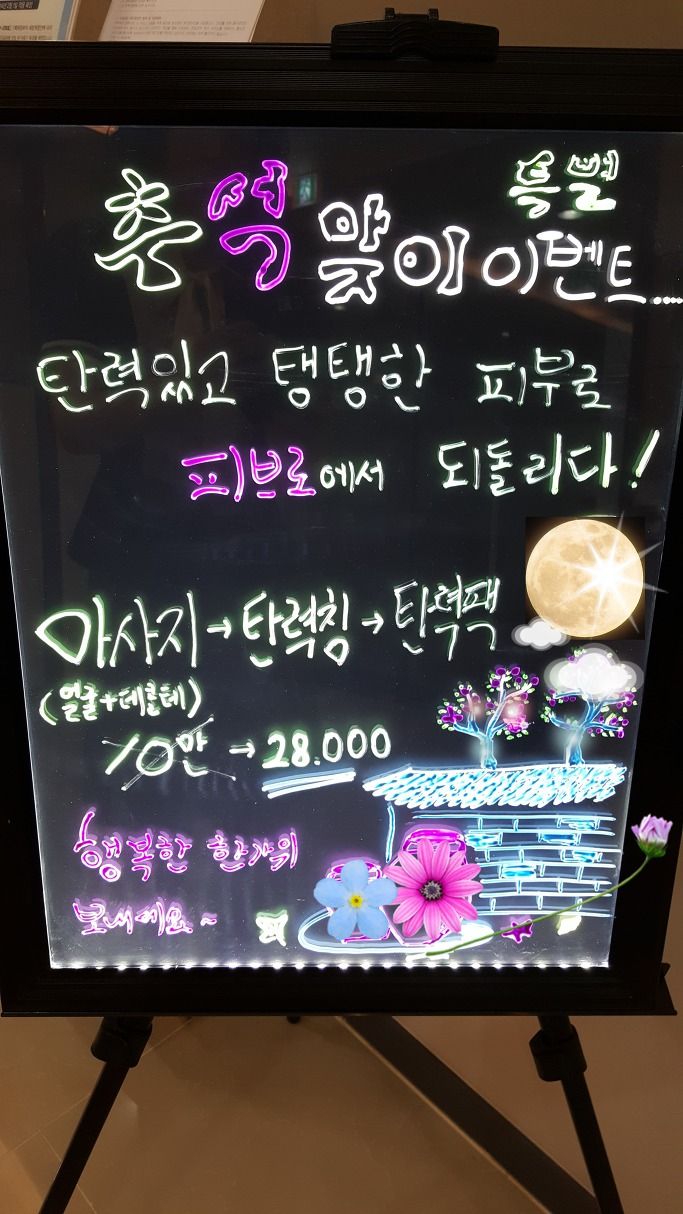 특별
추석 맞이 이벤트....
탄력있고 탱탱한 피부로
피브로에서 되돌리다!
마사지→탄력침→탄력팩
(얼굴+데콜테)
10만 → 28.000
행복한 한가위
보내세요~